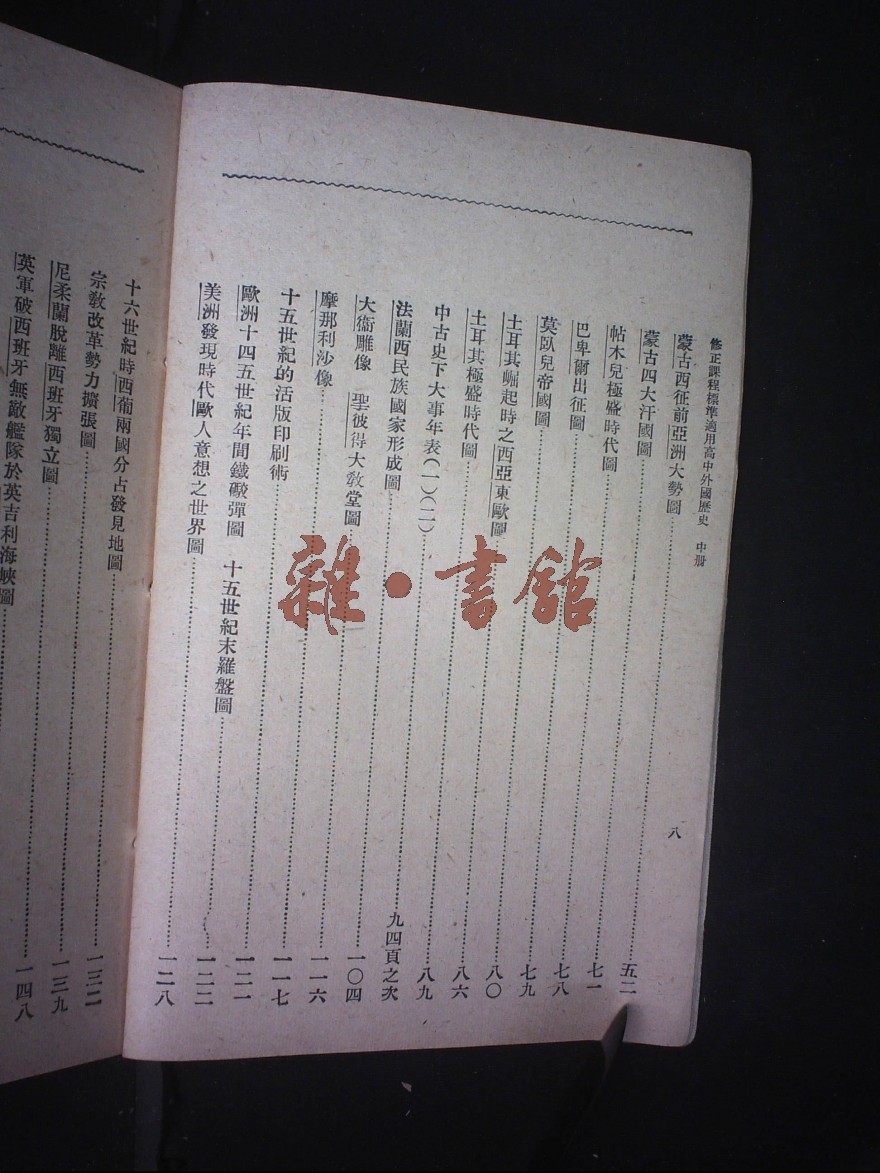 修正課程標準適用高中外國歷史 中册 八
蒙古西征前亞洲大勢圖……五二
蒙古四大汗國圖……七一
帖木兒極盛時代圖……七八
巴卑爾出征圖……七九
莫臥兒帝國圖……八〇
土耳其崛起時之西亞東歐圖……八六
土耳其極盛時代圖……八九
中古史下大事年表(一)(二)……九四頁之次
法蘭西民族國家形成圖……一〇四
大衞雕像 聖彼得大教堂圖……一一六
摩那利沙像……一一七
十五世紀的活版印刷術……一二一
歐洲十四五世紀年間鐵礮彈圖 十五世紀末羅盤圖……一二二
美洲發現時代歐人意想之世界圖……一二八
十六世紀時西葡兩國分占發見地圖……一三二
宗教改革勢力擴張圖……一三九
尼柔蘭脫離西班牙獨立圖……一四八
英軍破西班牙無敵艦隊於英吉利海峽圖
雜·書館